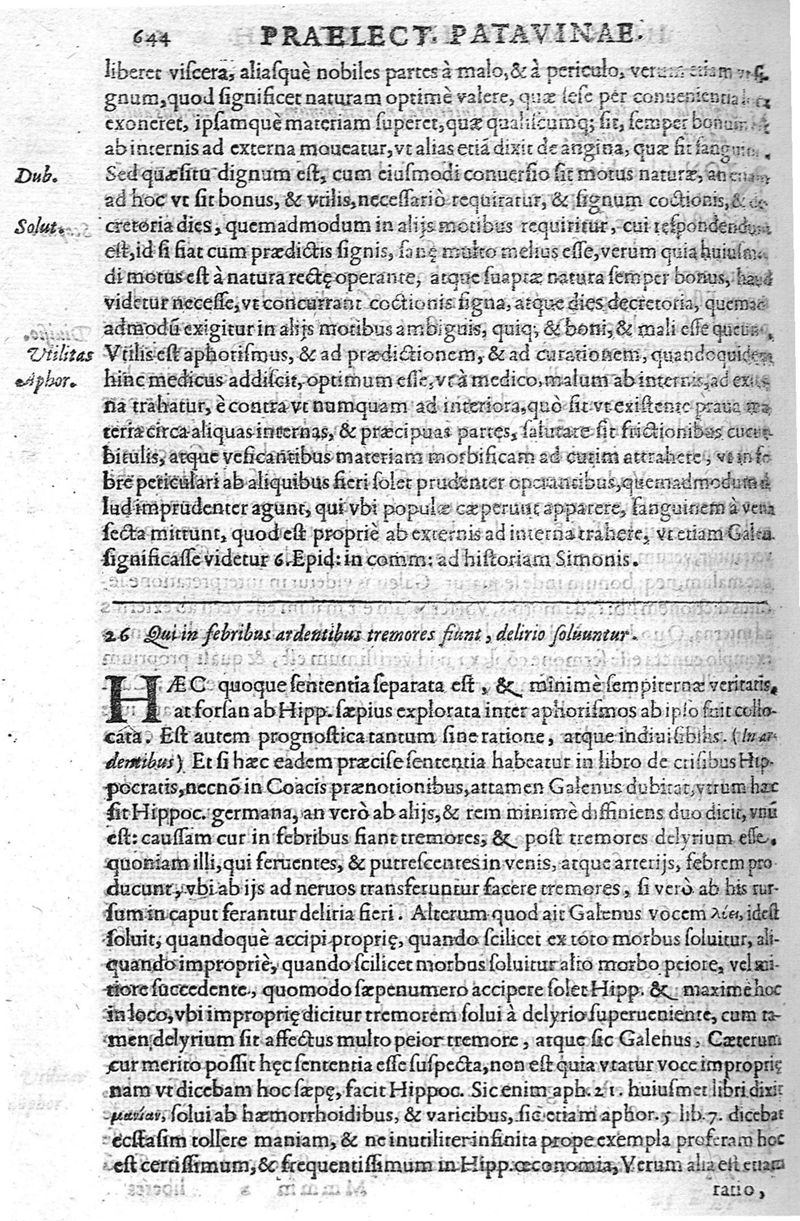 644 PRAELECT. PATAVINAE.
liberet viscera, aliasquè nobiles partes à malo, & à periculo, verum etiam
gnum, quod significet naturam optimè valere, quæ sese per conuenientia
exoneret, ipsamquè materiam superet, quæ qualiscumq; sit, semper bonum
ab internis ad externa moueatur, vt alias etiã dixit de angina, quæ fit sanguine
Dub. Sed quæsitu dignum est, cum eiusmodi conuersio sit motus naturæ, an etiam
ad hoc vt sit bonus, & vtilis, necessariò requiratur, & signum coctionis, & de-
Solut. cretoria dies, quemadmodum in alijs motibus requiritur, cui respondendum
est, id si fiat cum prædictis signis, sanę multo melius esse, verum quia huiusmo-
di motus est à natura rectę operante, atque suaptæ natura semper bonus, haud
videtur necesse, vt concurrant coctionis signa, atque dies decretoria, quemad-
admodũ exigitur in alijs motibus ambiguis, quiq; & boni, & mali esse
Vtilitas Vtilis est aphorismus, & ad prædictionem, & ad curationem, quandoquidem
Aphor. hinc medicus addiscit, optimum esse, vt à medico, malum ab internis, ad exter-
na trahatur, è contra vt numquam ad interiora, quò fit vt existente praua ma-
teria circa aliquas internas, & præcipuas partes, salutare sit frictionibus cucur-
bitulis, atque vesicantibus materiam morbificam ad cutim attrahere, vt in fe-
bre peticulari ab aliquibus fieri solet prudenter operantibus, quemadmodum il-
lud imprudenter agunt, qui vbi populæ cæperunt apparere, sanguinem à vena
secta mittunt, quod est propriè ab externis ad interna trahere, vt etiam Galen.
significasse videtur 6. Epid: in comm: ad historiam Simonis.
26 Qui in febribus ardentibus tremores fiunt, delirio soluuntur.
HÆC quoque sententia separata est, & minimè sempiternæ veritatis,
at forsan ab Hipp. sæpius explorata inter aphorismos ab ipso fuit collo-
cata. Est autem prognostica tantum sine ratione, atque indiuisibilis. (In ar-
dentibus) Et si hæc eadem præcise sententia habeatur in libro de crisibus Hip-
pocratis, necnõ in Coacis prænotionibus, attamen Galenus dubitat, vtrum hæc
sit Hippoc. germana, an verò ab alijs, & rem minimè diffiniens duo dicit, vnũ
est: caussam cur in febribus fiant tremores, & post tremores delyrium esse,
quoniam illi, qui feruentes, & putrescentes in venis, atque arterijs, febrem pro
ducunt, vbi ab ijs ad neruos transferuntur facere tremores, si verò ab his rur-
sum in caput ferantur deliria fieri. Alterum quod ait Galenus vocem λύει, idest
soluit, quandoquè accipi proprię, quando scilicet ex toto morbus soluitur, ali-
quando impropriè, quando scilicet morbus soluitur alio morbo peiore, vel mi-
tiore succedente, quomodo sæpenumero accipere solet Hipp. & maximè hoc
in loco, vbi impropriè dicitur tremorem solui à delyrio superueniente, cum ta-
men delyrium sit affectus multo peior tremore, atque sic Galenus, Cæterum
cur merito possit hęc sententia esse suspecta, non est quia vtatur voce improprię
nam vt dicebam hoc sæpę, facit Hippoc. Sic enim aph. 21. huiusmet libri dixit
μανίαν, solui ab hæmorrhoidibus, & varicibus, sic etiam aphor. 5 lib. 7. dicebat
ecstasim tollere maniam, & ne inutiliter infinita prope exempla proferam hoc
est certissimum, & frequentissimum in Hipp. œconomia, Verum alia est etiam
ratio,